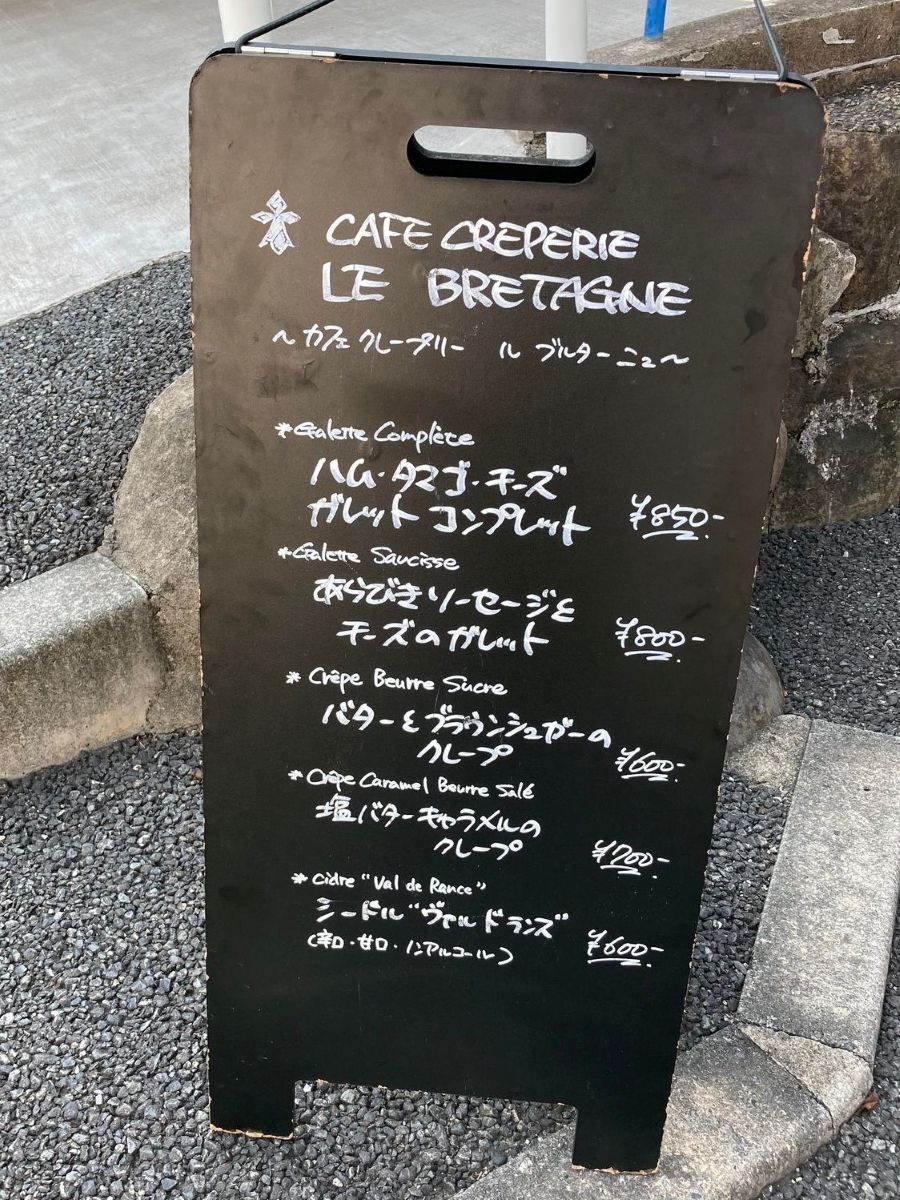 CAFE CREPERIE
LE BRETAGNE
～カフェ クレープリー ル ブルターニュ～
*Galette Complète
ハム・タマゴ・チーズ
ガレット コンプレット ¥850-
*Galette Saucisse
あらびきソーセージと
チーズのガレット ¥800-
* Crêpe Beurre Sucre
バターとブラウンシュガーの
クレープ ¥600-
* Crêpe Caramel Beurre Salé
塩バターキャラメルの
クレープ ¥700-
* Cidre "Val de Rance"
シードル"ヴァル ド ランス"
(辛口・甘口・ノンアルコール) ¥600-